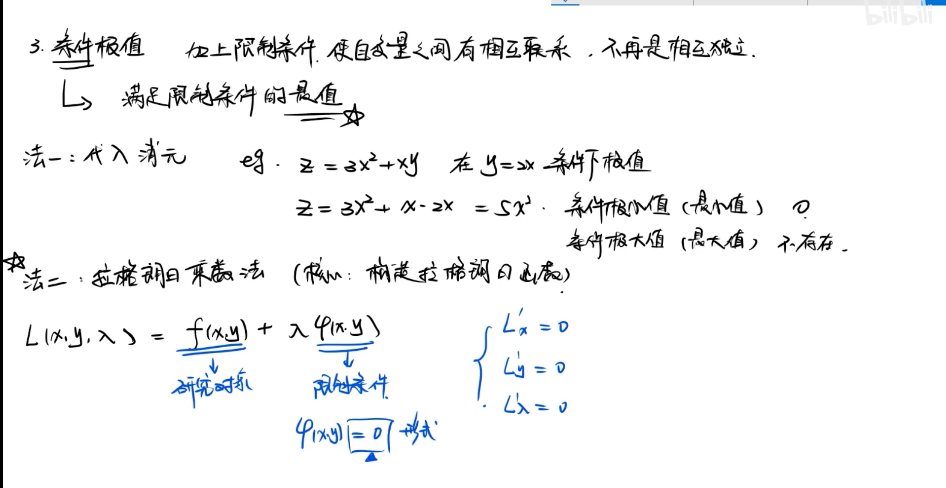 bilibili
3. 条件极值 加上限制条件.使自变量之间有相互联系.不再是相互独立.
↳ 满足限制条件的最值 ☆
法一:代入消元 eg. z = 3x²+xy 在 y=2x 条件下极值
z = 3x²+ x·2x = 5x². 条件极小值(最小值) 0
条件极大值(最大值) 不存在.
☆法二:拉格朗日乘数法 (核心:构造拉格朗日函数)
L(x,y,λ) = f(x,y) + λφ(x,y)
↓ 研究对象 ↓ 限制条件
φ(x,y) = 0 形式
{ L'x = 0
L'y = 0
L'λ = 0